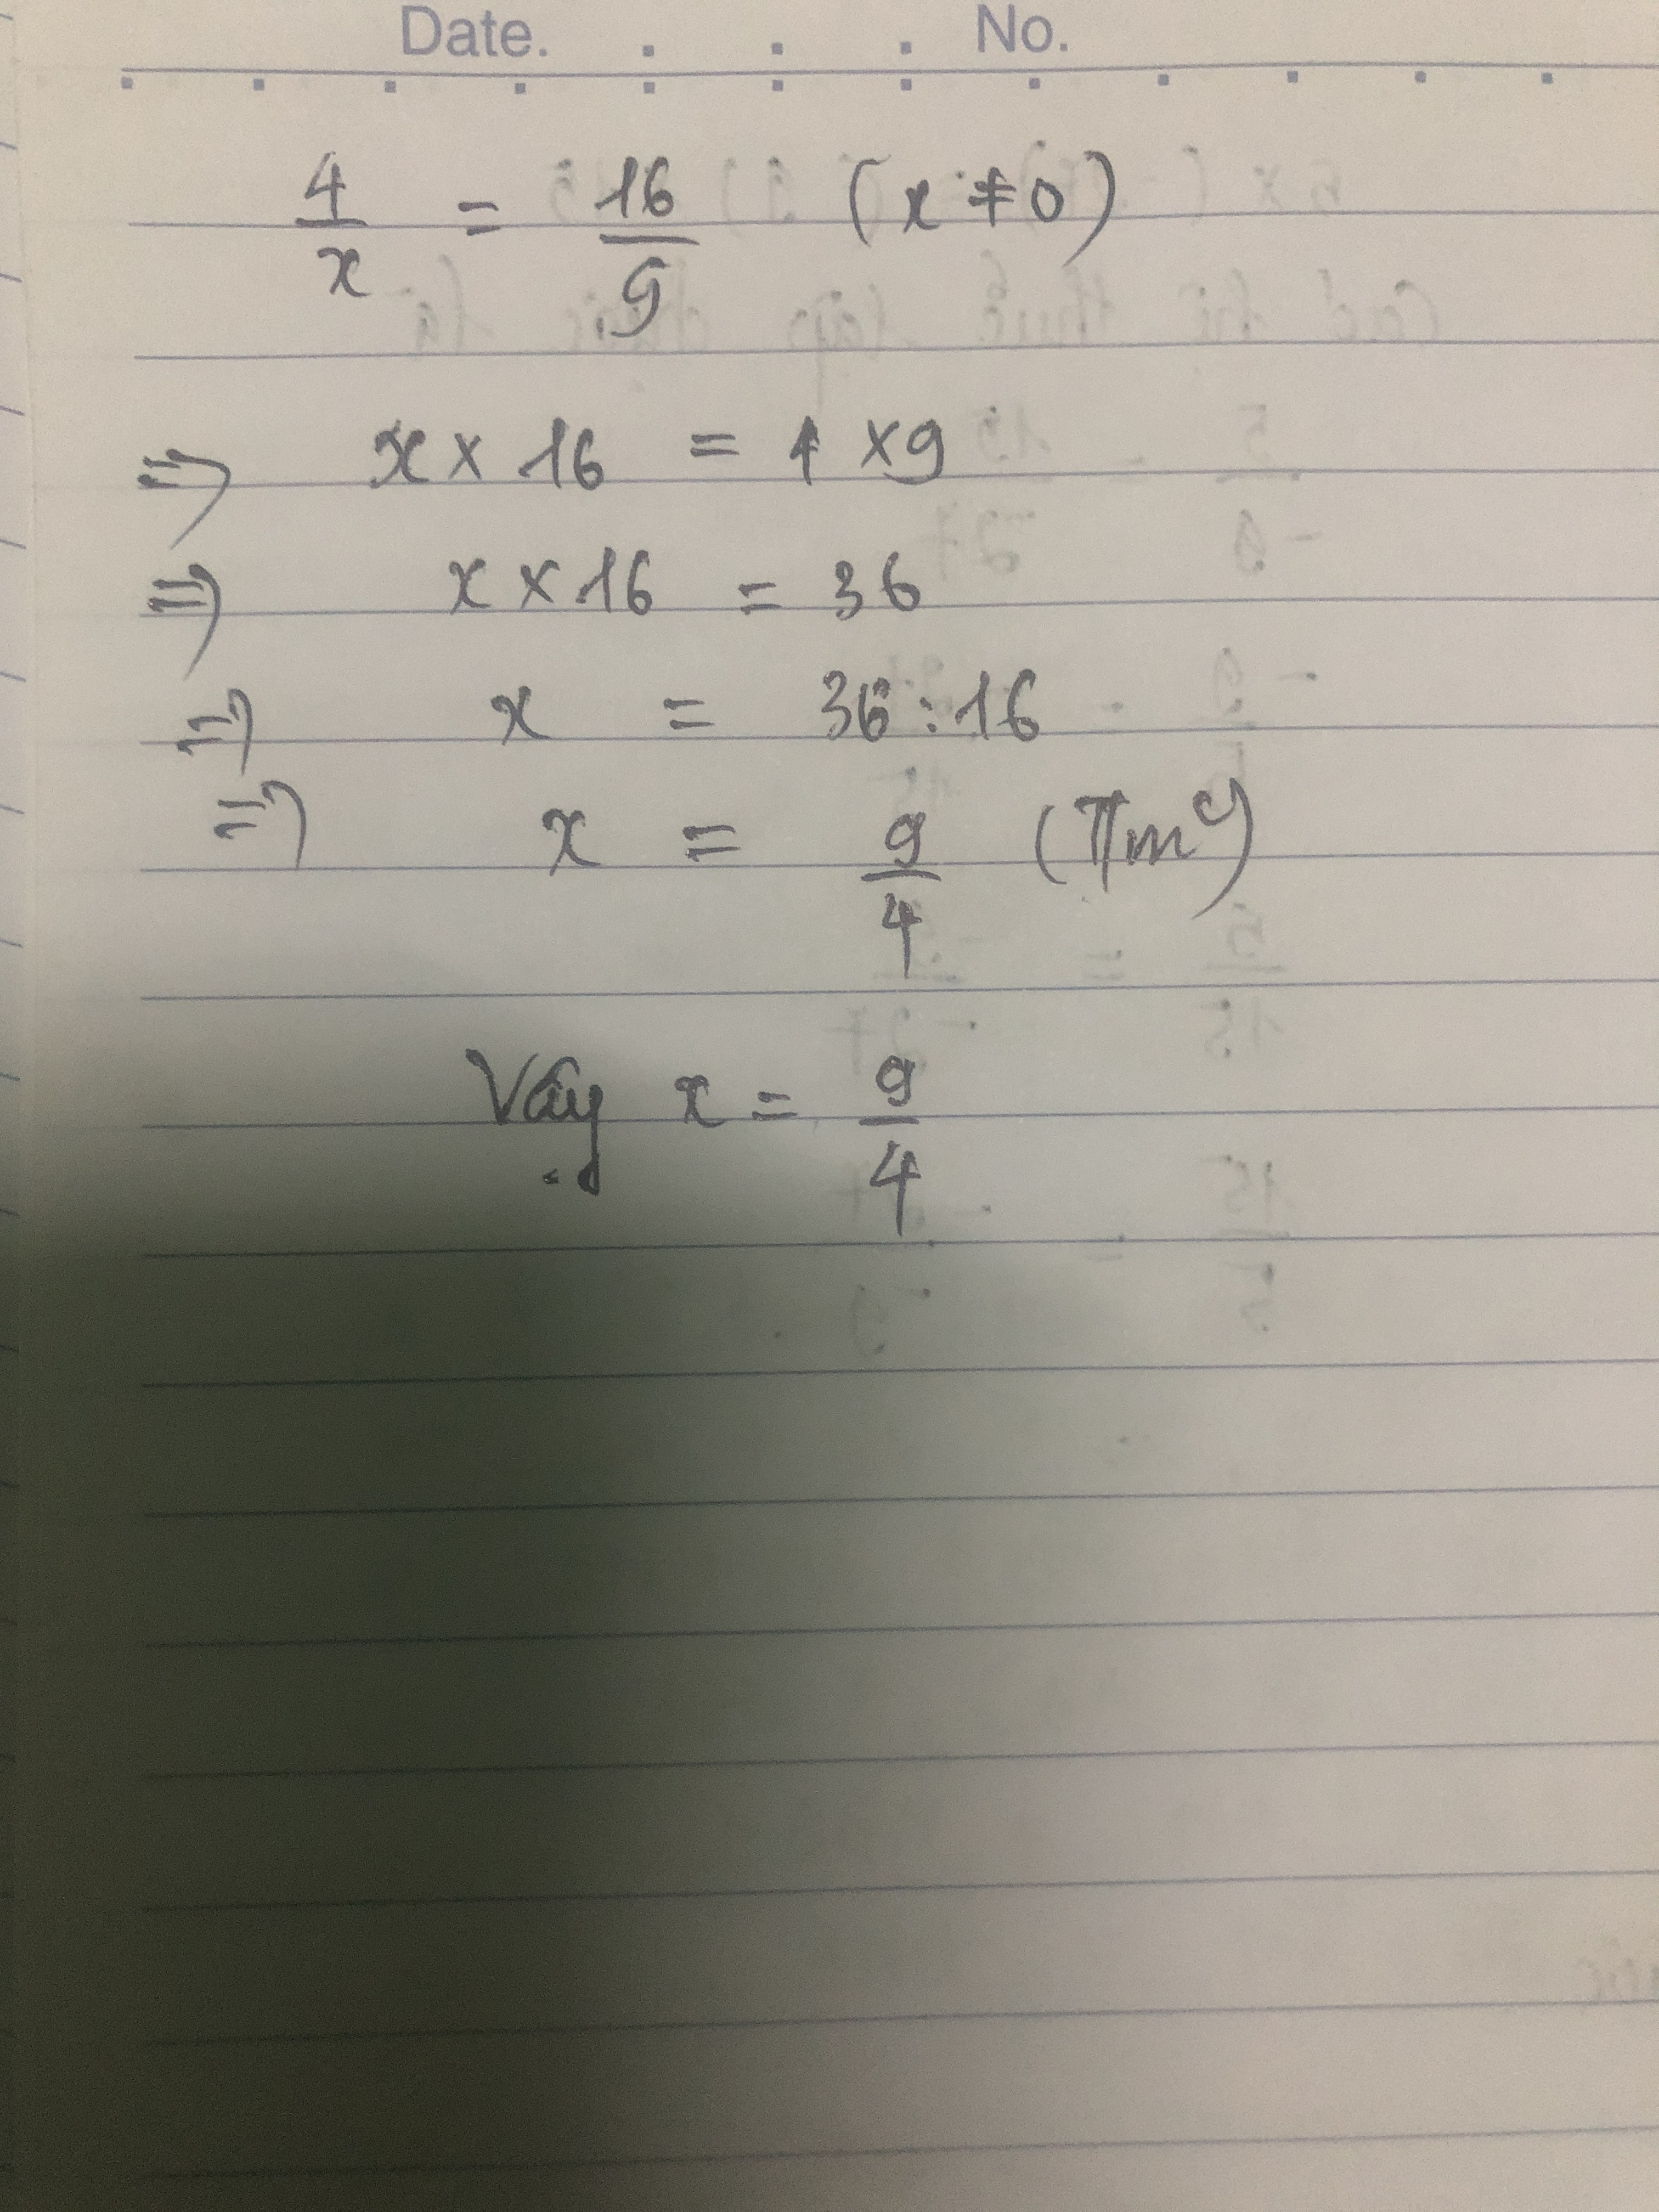 Date. No.
4/x = 16/9 (x ≠ 0)
=> x × 16 = 4 × 9
=> x × 16 = 36
=> x = 36 : 16
=> x = 9/4 (TMĐ)
Vậy x = 9/4